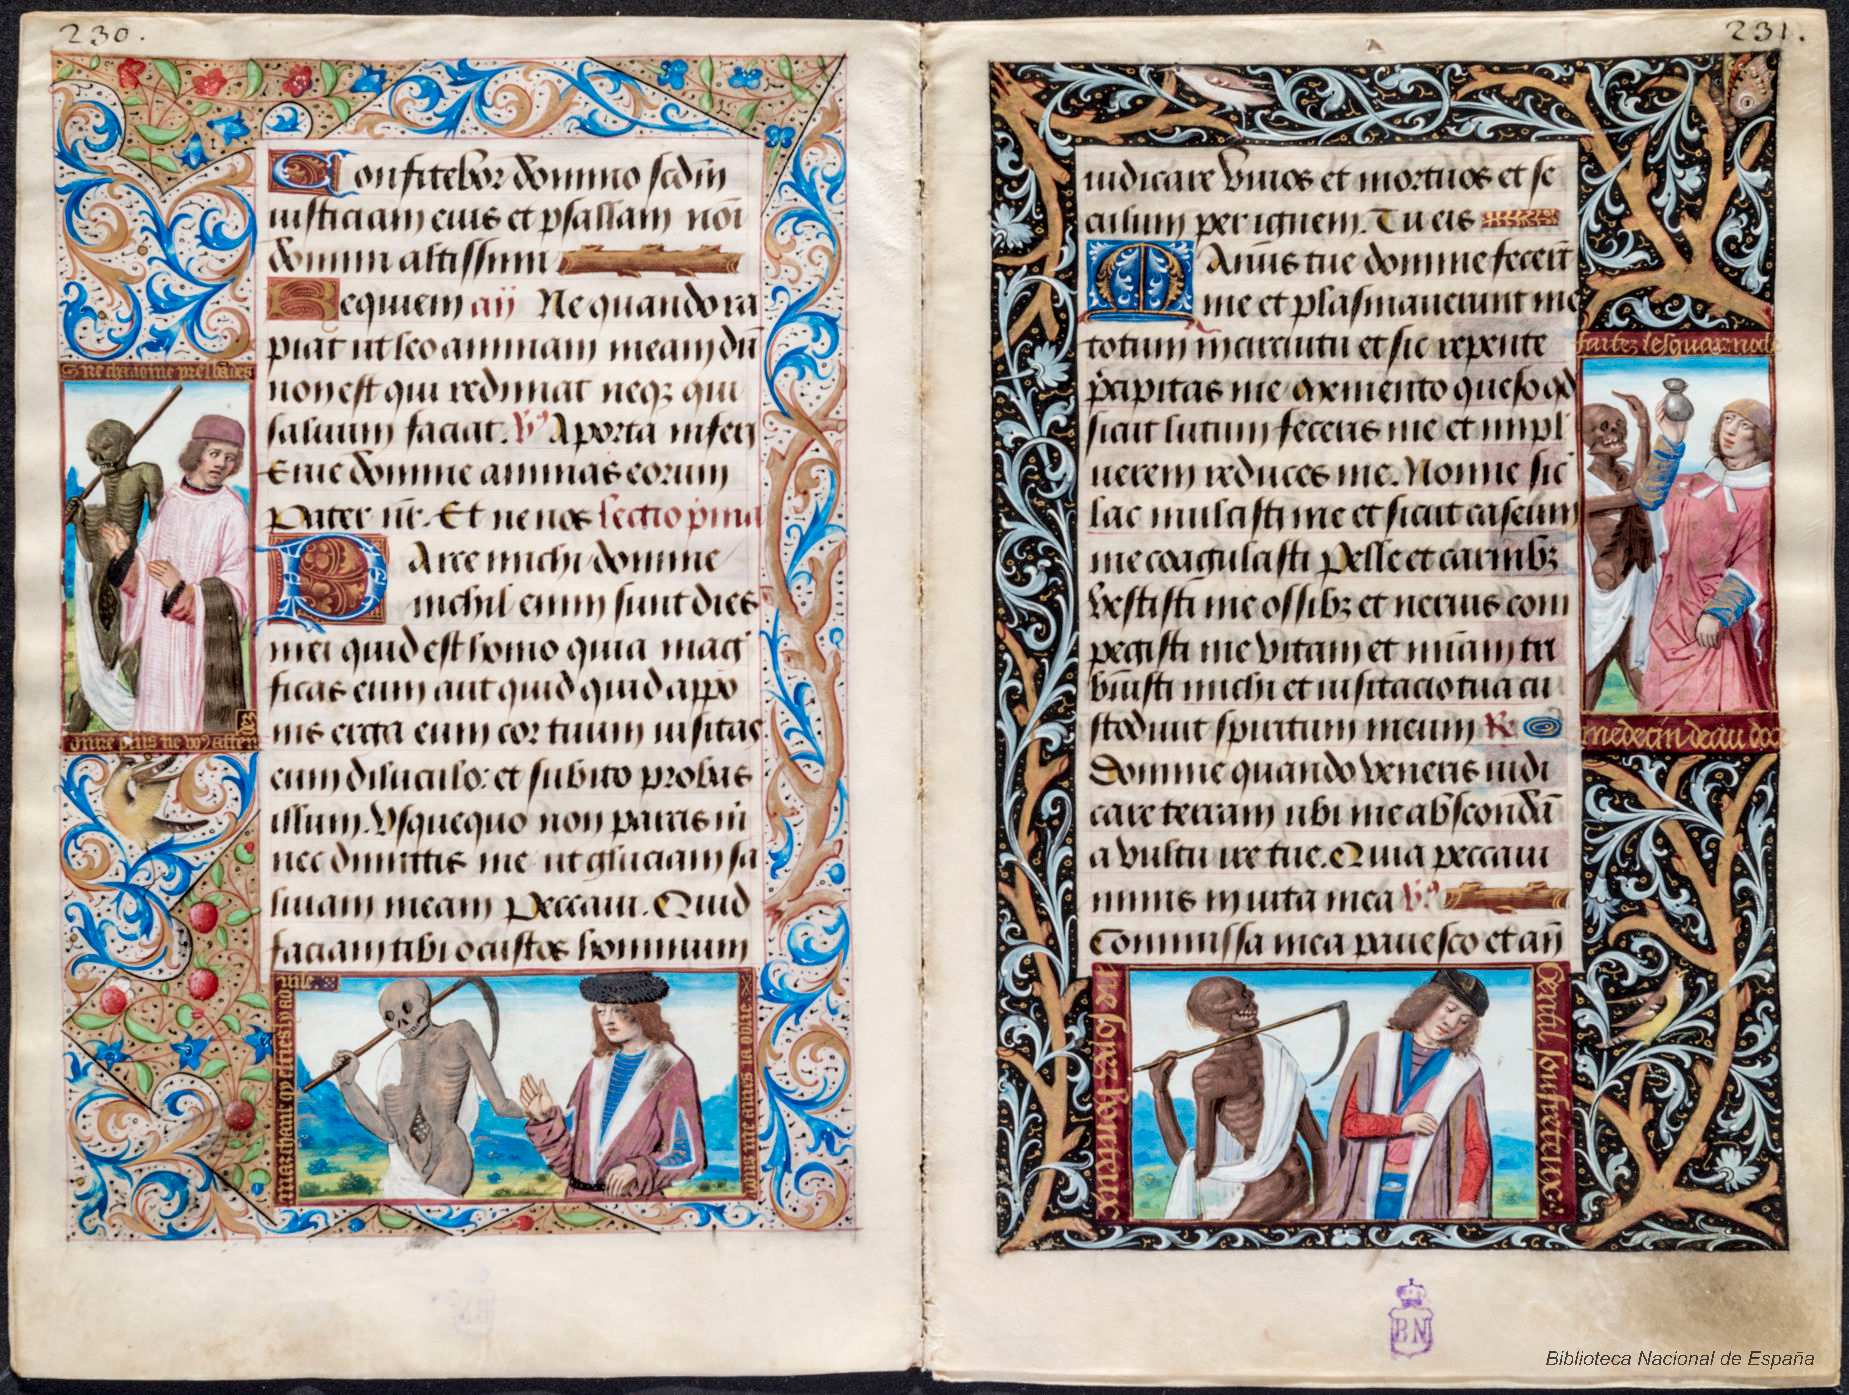 230.
Confitebor domino scdm
iusticiam eius et psallam noi
domini altissimi
Requiem añ Ne quando ra
piat ut leo animam meam dū
non est qui redimat neqʒ qui
saluum faciat. Vs A porta inferi
Erue domine animas eorum
Pater nr. Et ne nos lectio pma
Parce michi domine
nichil enim sunt dies
mei quid est homo quia magi
ficas eum aut quid quid appo
nis erga eum cor tuum uisitas
eum diluculo: et subito probas
illum. Vsquequo non parcis mi
nec dimittis me ut gluciam sa
liuam meam Peccaui. Quid
faciam tibi o custos hominum
231.
iudicare viuos et mortuos et se
culum per ignem. Tu eis
Manus tue domine fecerūt
me et plasmauerunt me
totum in circuitu et sic repente
pcipitas me memento queso qd
sicut lutum feceris me et in pul
uerem reduces me. Nonne sic
lac mulcisti me et sicut caseum
me coagulasti Pelle et carnibʒ
vestisti me ossibʒ et neruis com
pegisti me vitam et miam tri
buisti michi et uisitacio tua cu
stodiuit spiritum meum R.
Domine quando veneris iudi
care terram ubi me abscondā
a vultu ire tue. Quia peccaui
nimis in uita mea Vs
Commissa mea pauesco et añ
BN
Biblioteca Nacional de España